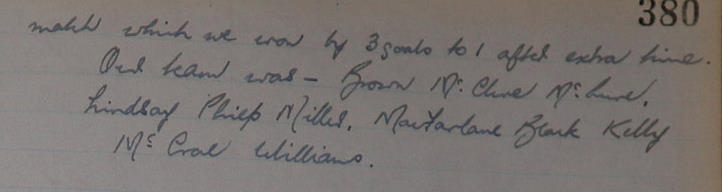 380
match which we won by 3 goals to 1 after extra time.
Our team was – Brown Mc Clure Mc Lure,
Lindsay Philp Miller, MacFarlane Black Kelly
Mc Crae Williams.